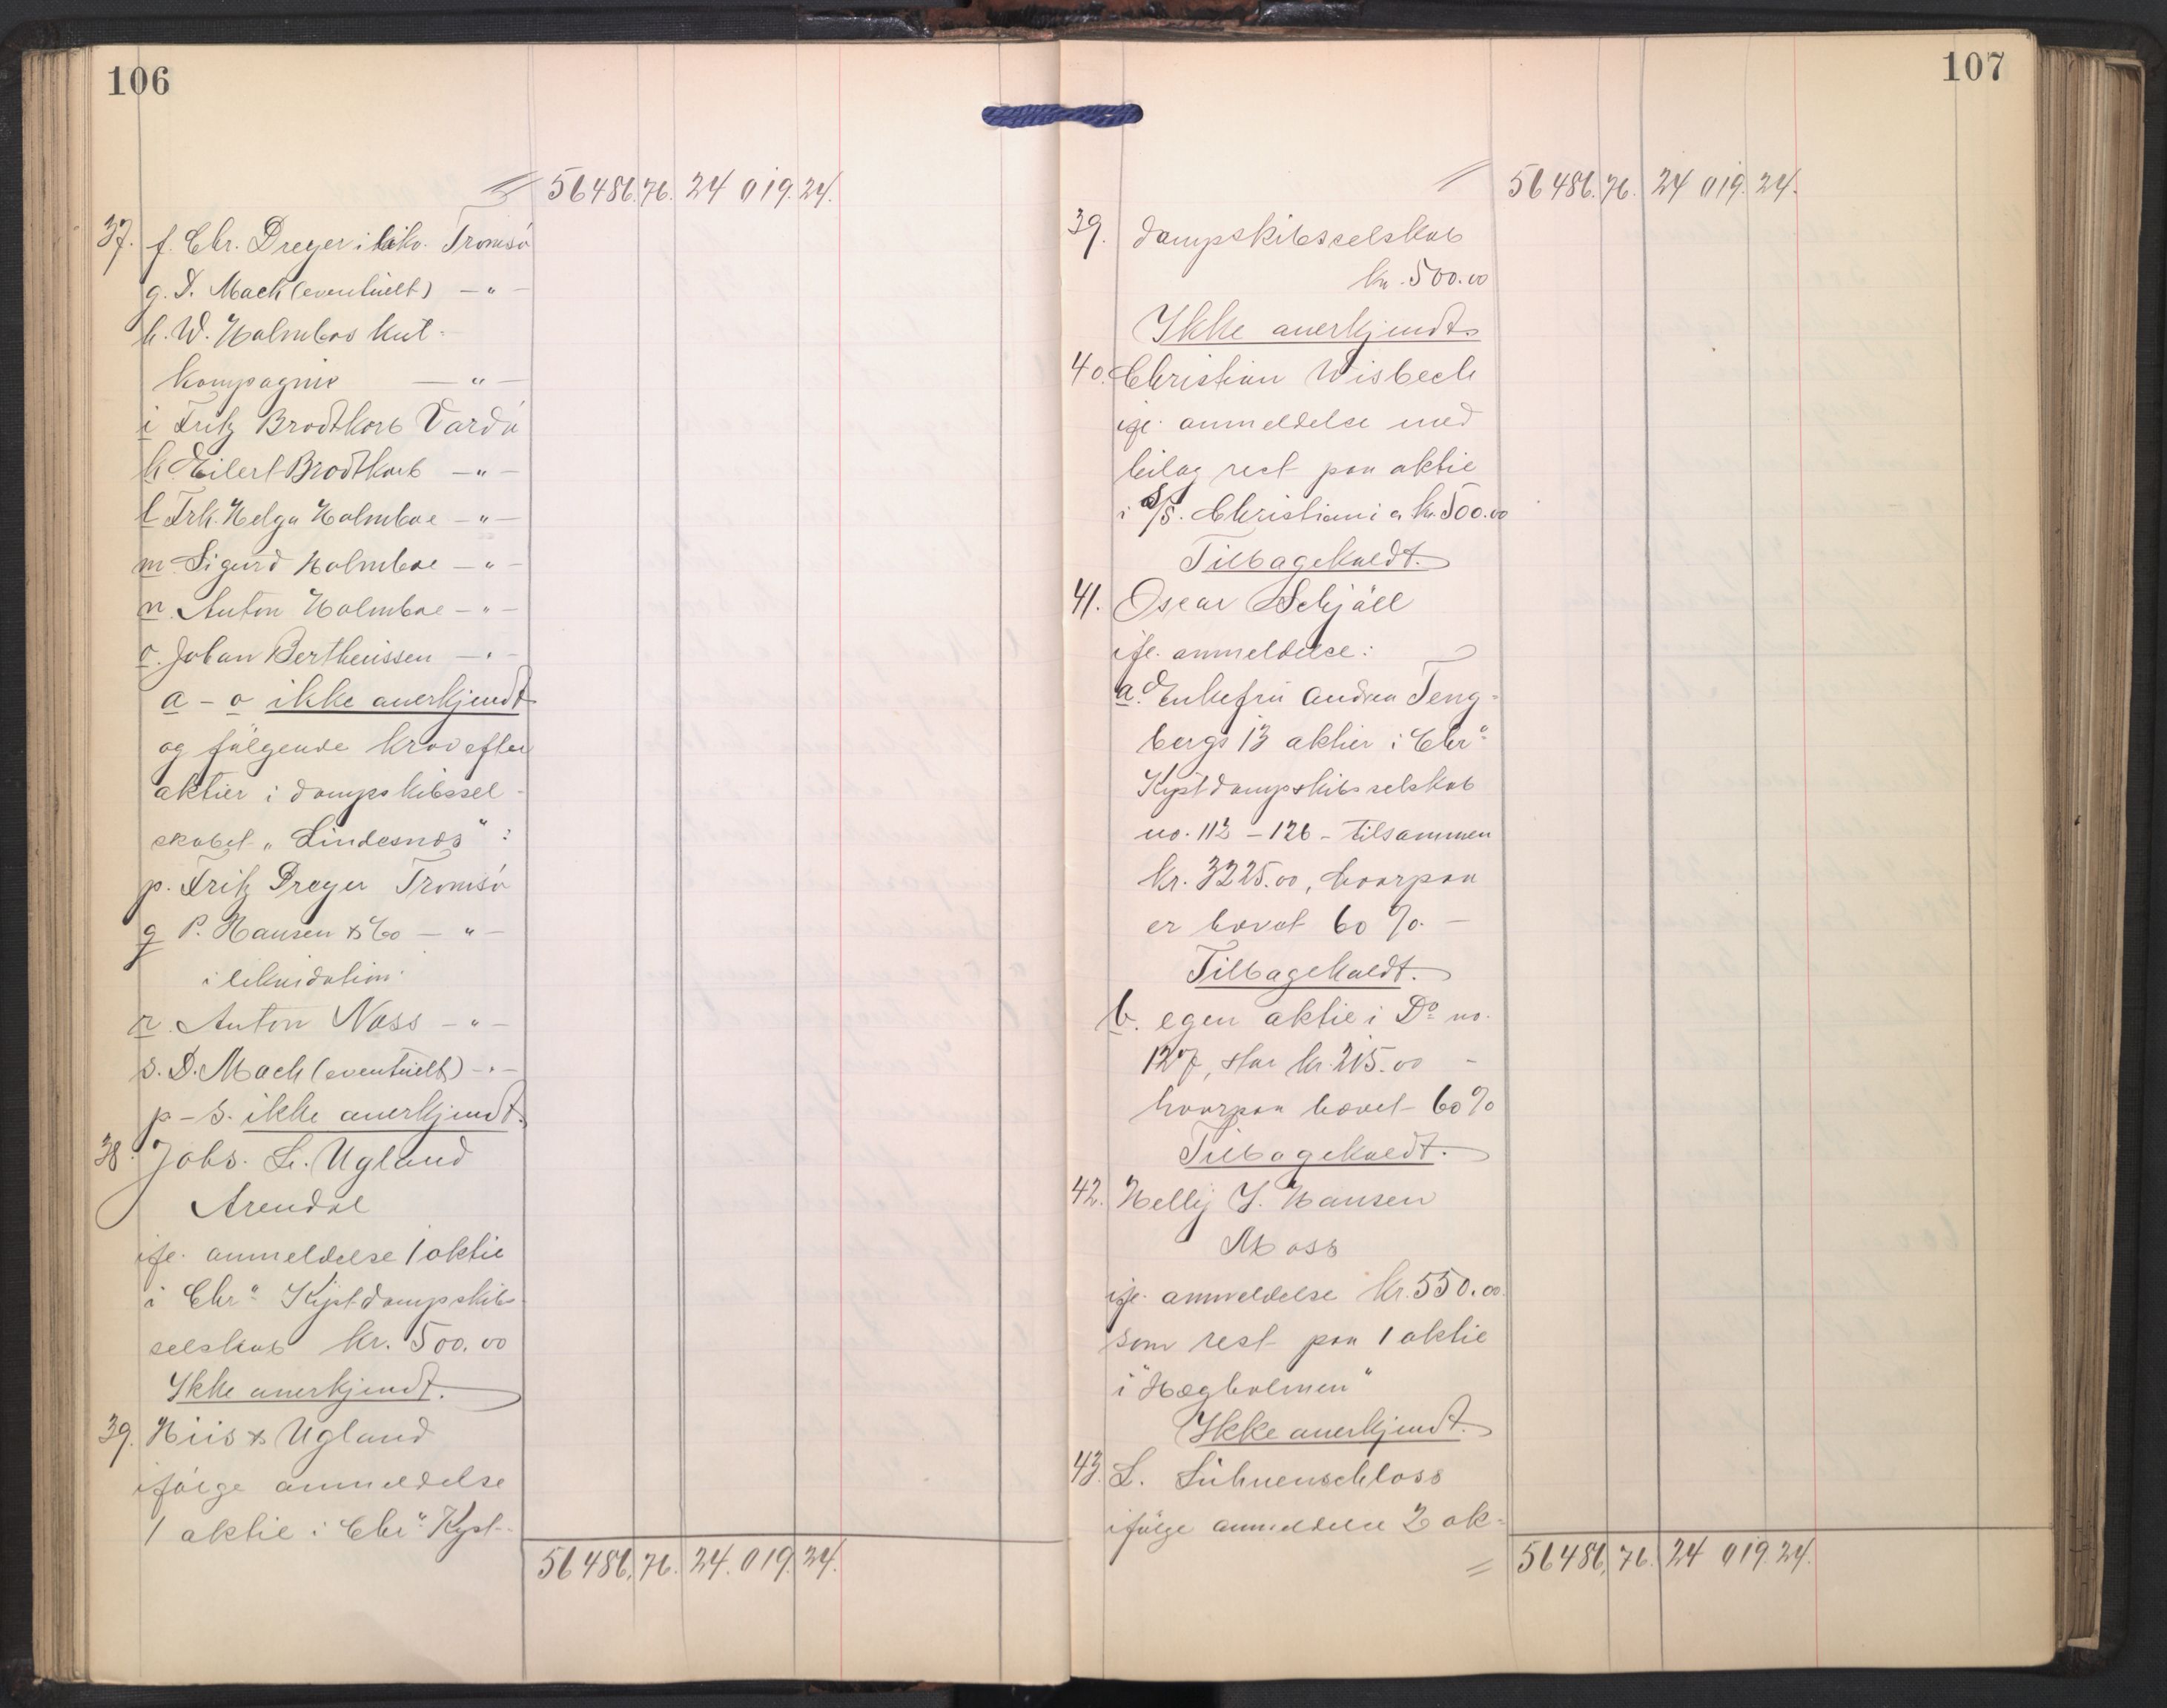 106
56486.76. 24 019.24.
37. f. Chr. Dreyer i likv. Tromsö
g. D. Mack (eventuelt) — " —
h. W. Holmboe kul-
kompagnie — " —
i Fritz Brodtkorb Vardö
k Eilert Brodtkorb — " —
l Frk. Helga Holmboe — " —
m. Sigurd Holmboe — " —
n. Anton Holmboe — " —
o. Johan Bertheussen — " —
a - o ikke anerkjendt
og fölgende krav efter
aktier i dampskibssel-
skabet „Lindesnæs" :
p. Fritz Dreyer Tromsö
q P. Hansen & Co — " —
i likvidation.
r. Anton Næss — " —
s. D. Mack (eventuelt) — " —
p - s. ikke anerkjendt.
38. Johs. L. Ugland
Arendal
ifl. anmeldelse 1 aktie
i Chr.a Kystdampskibs-
selskab kr. 500.00
Ikke anerkjendt.
39. Hiis & Ugland
ifölge anmeldelse
1 aktie i Chr.a Kyst-
56486.76. 24. 019.24.
107
56486.76. 24 019.24.
39. dampskibsselskab
kr. 500.00
Ikke anerkjendt.
40. Christian Wisbech
ifl. anmeldelse med
bilag rest paa aktie
i S/S. Christiania kr. 500.00
Tilbagekaldt.
41. Oscar Schjöll
ifl. anmeldelse:
a. Enkefru Andrea Teng-
bergs 13 aktier i Chr.a
Kystdampskibsselskab
no. 112 - 126 - tilsammen
kr. 3225.00, hvorpaa
er hævet 60 %. -
Tilbagekaldt.
b. egen aktie i Do no.
127, stor kr. 215.00 -
hvorpaa hævet 60 %
Tilbagekaldt.
42. Helly J. Hansen
Moss
ifl. anmeldelse kr. 550.00.
som rest paa 1 aktie
i "Hægholmen"
Ikke anerkjendt.
43. L. Lühnenschloss
ifölge anmeldelse 2 ak-
= 56486.76. 24 019.24.